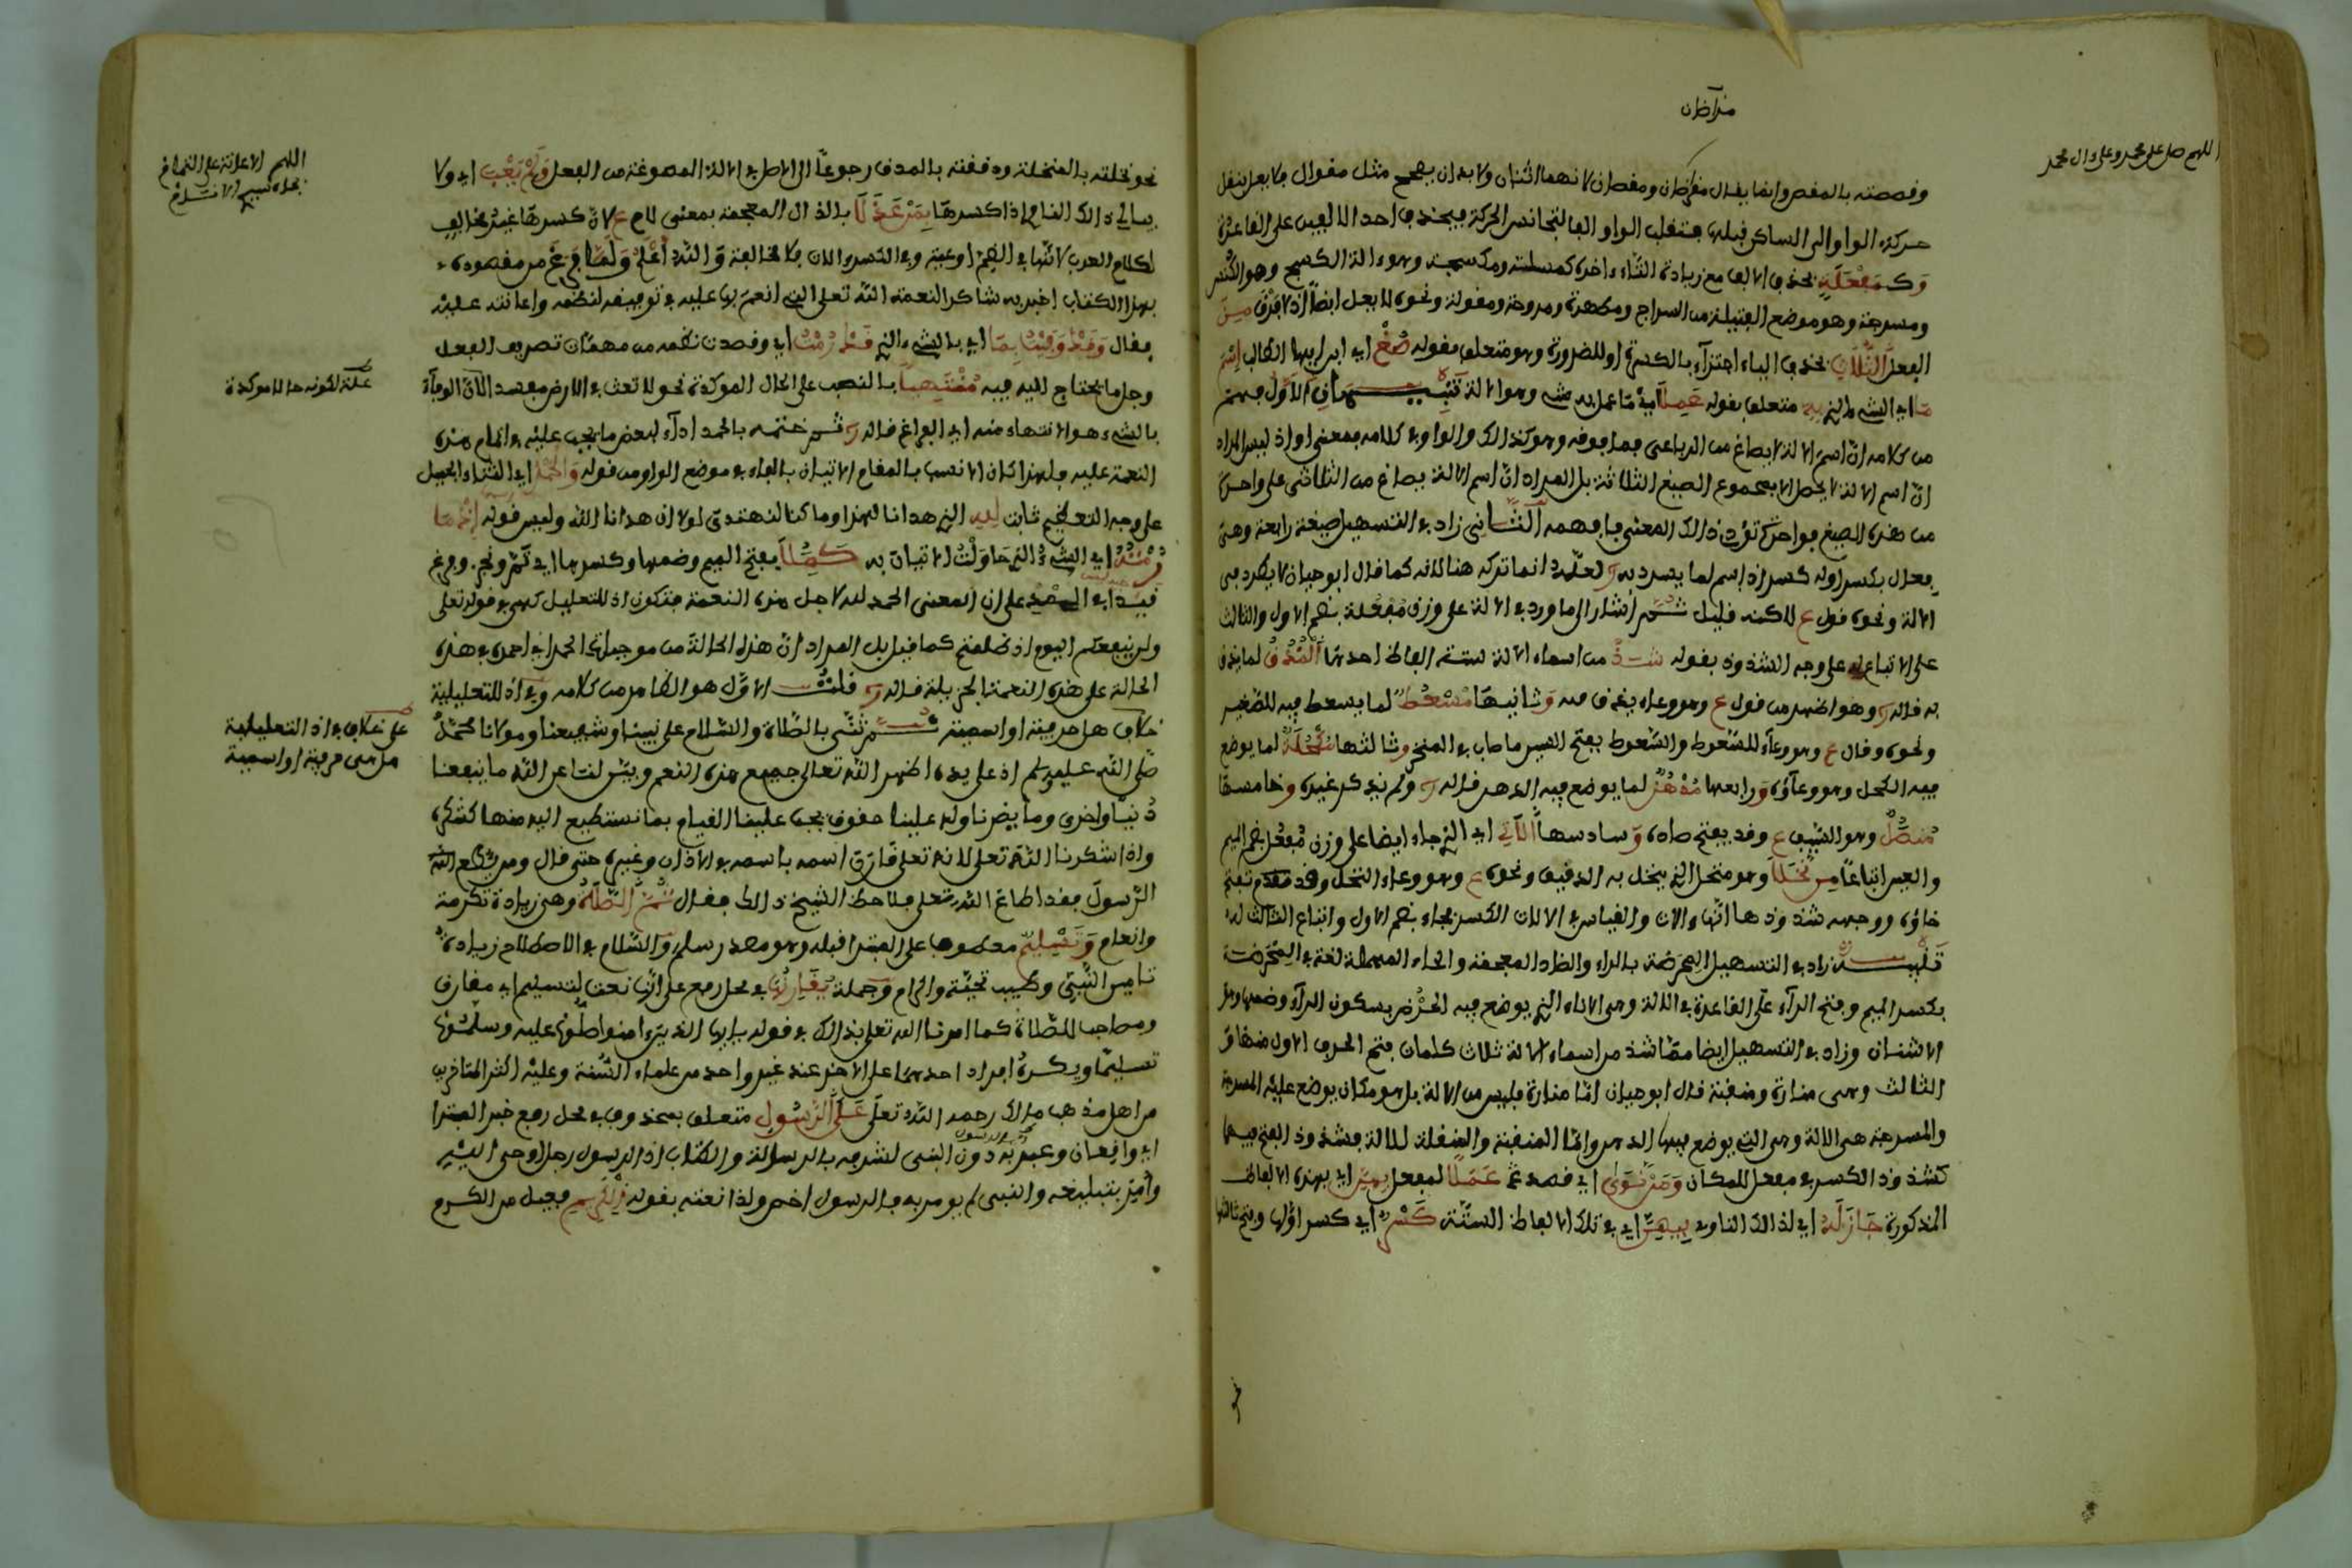 اللهم صل على محمد وعلى ال محمد
وقصصته بالمقص وانما يقال ومقصان لانهما اثنان ولا بد ان يصحح مثل مقوال فلا يعل بنقل
حركة الواو الى الساكن قبلها فتنقلب الواو الفا لتجانس الحركة فيحذف احد الالفين على القاعدة
وكمفعلة بحذف الالف مع زيادة التاء اخره كمنسلته ومكسحة وهو ءالة الكسح وهو الكنس
ومسرجة وهو موضع الفتيلة من السراج ومطهرة ومروحة ومقولة ونحوه لا يعل ايضا اذ لا فرق من
الفعل الثلاث بحذف الياء اجتزاء بالكسرة او للضرورة وهو متعلق بقوله صغ اي ابن ايها الطالب اسم
ما اي الشيء الذي به متعلق بقوله عملا اي ما عمل به شيء وهو الالة تنبيهان الاول فهم
من كلامه ان اسم الالة لا يصاغ من الرباعي فما فوقه وهو كذلك والواو في كلامه بمعنى او اذ ليس المراد
ان اسم الالة لا يحصل الا بمجموع الصيغ الثلاثة بل المراد ان اسم الالة يصاغ من الثلاثي على واحدة
من هذه الصيغ فواحدة تؤدي ذالك المعنى فافهمه الثاني زاد في التسهيل صيغة رابعة وهي
فعال بكسر اوله كسراد اسم لما يسرد به ولعله انما تركه هنا لانه كما قال ابو حيان لا يطرد في
الالة ونحوه قول ع لاكنه قليل ثم اشار الى ما ورد في الالة على وزن مفعلة بضم الاول والثالث
على الاتباع على وجه الشذوذ بقوله شذ من اسماء الالة ستة الفاظ احدها المدق لما يدق
به قاله وهو اظهر من قول ع وهو وعاء يدق فيه وثانيها مسعط لما يسعط فيه للصغير
ونحوه وقال ع وهو وعاء للسعوط والسعوط بفتح السين ما صاب في المنخر وثالثها مكحلة لما يوضع
فيه الكحل وهو وعاؤه ورابعها مدهن لما يوضع فيه الدهن قاله ولم يذكر غيره وخامسها
منصل وهو السيف ع وقد يفتح صاده وسادسها الآتي اي الذي جاء ايضا على وزن مفعل بضم الميم
والعين اتباعا من نخلا وهو منخل الذي ينخل به الدقيق ونحوه ع وهو وعاء النخل وقد تفتح
خاؤه ووجه شذوذها انها ءالات والقياس في الالات الكسر فجاء بضم الاول واتباع الثالث له
تنبيه زاد في التسهيل المحرضة بالراء والضاد المعجمة والحاء المهملة لغة في المحرضة
بكسر الميم وفتح الراء على القاعدة في الالة وهي الاناء الذي يوضع فيه الحرض بسكون الراء وضمها وهو
الاشنان وزاد في التسهيل ايضا مما شذ من اسماء الالة ثلاث كلمات بفتح الحرف الاول منها و
الثالث وهي منارة ومنقبة قال ابو حيان اما منارة فليس من الالة بل هو مكان يوضع عليه المسرجة
والمسرجة هي الالة وهي التي يوضع فيها الدهن واما المنقبة والمنقلة للالة فشذوذ الفتح فيهما
كشذوذ الكسر في مفعل للمكان ومن نوى اي قصد عملا لمفعل بهن اي بهذه الالفاظ
المذكورة جاز له اي لذالك الناوي فيهن اي في تلك الالفاظ الستة كسر اي كسر اولها وفتح ثالثها
نحو
نحو نخلته بالمنخلة ودققته بالمدق رجوعا الى الاصل في الالة المصوغة من الفعل ولم يعب اي ولا
يبالي ذالك الناوي اذا كسرها بمن عذلا بالذال المعجمة بمعنى لام ع لان كسرها غير مخالف
لكلام العرب لانها في الضم اوعية وفي الكسر ءالات فلا مخالفة والله اعلم ولما فرغ من مقصوده
بهذا الكتاب اخبر به شاكرا لنعمة الله تعلى الذي انعم بها عليه في توفيقه لنظمه واعانته عليه
فقال وقد وفيت بما اي بالشيء الذي قد رمت اي وقصدت نظمه من مهمات تصريف الفعل
وجل ما يحتاج اليه فيه منتهيا بالنصب على الحال الموكدة نحو لا تعث في الارض مفسدا لان الوفاء
بالشيء هو الانتهاء منه اي الفراغ قاله ثم ختمه بالحمد اداء لبعض ما يجب عليه في اتمام هذه
النعمة عليه ولهذا كان الانسب بالمقام الاتيان بالفاء في موضع الواو من قوله والحمد اي الثناء الجميل
على وجه التعظيم ثابت لله الذي هدانا لهذا وما كنا لنهتدي لولا ان هدانا الله وليس قوله اذ ما
رمته اي الشيء الذي حاولت الاتيان به كملا بفتح الميم وضمها وكسرها اي تم ونجز وفرغ
على ان المعنى الحمد لله لاجل هذه النعمة فتكون اذ للتعليل كهي في قوله تعلى
ولن ينفعكم اليوم اذ ظلمتم كما قيل بل المراد ان هذه الحالة من موجبات الحمد اي احمده في هذه
الحالة على هذه النعمة الجزيلة قاله قلت الاول هو الظاهر من كلامه وفي اذ للتعليلية
خلاف هل حرفية او اسمية ثم ثنى بالصلاة والسلام على نبينا وشفيعنا ومولانا محمد
صلى الله عليه وسلم اذ على يده اظهر الله تعالى جميع هذه النعم وبين لنا عن الله ما ينفعنا
دنيا واخرى وما يضرنا وله علينا حقوق يجب علينا القيام بما نستطيع اليه منها كشكره
واذا شكرنا الله تعلى لانه تعلى قارن اسمه باسمه في الاذان وغيره حتى قال ومن يطع
الرسول فقد اطاع الله تعلى فلاحظ الشيخ ذالك فقال ثم الصلاة وهي زيادة تكرمة
وانعام وتسليم معطوف على المبتدا قبله وهو مصدر سلم والسلام في الاصطلاح زيادة
تامين النبي وطيب تحية واكرام وجملة يقارنها في محل رفع على انها نعت لتسليم اي مقارن
ومصاحب للصلاة كما امرنا الله تعلى بذالك في قوله يايها الذين ءامنوا صلوا عليه وسلموا
تسليما ويكره افراد احدهما على الاخر عند غير واحد من علماء السنة وعليه اكثر المتاخرين
من اهل مذهب مالك رحمه الله تعلى على الرسول متعلق بمحذوف في محل رفع خبر المبتدا
اي واقعان وعبر به دون النبي لشرفه بالرسالة والكتاب اذ الرسول رجل اوحي اليه
وامر بتبليغه والنبي لم يومر به فالرسول اخص ولذا نعته بقوله الكريم فعيل من الكرم
اللهم الاعانة على التمام
علة لكونه حالا موكدة
على خلاف في اذ التعليلية
هل هي حرفية او اسمية